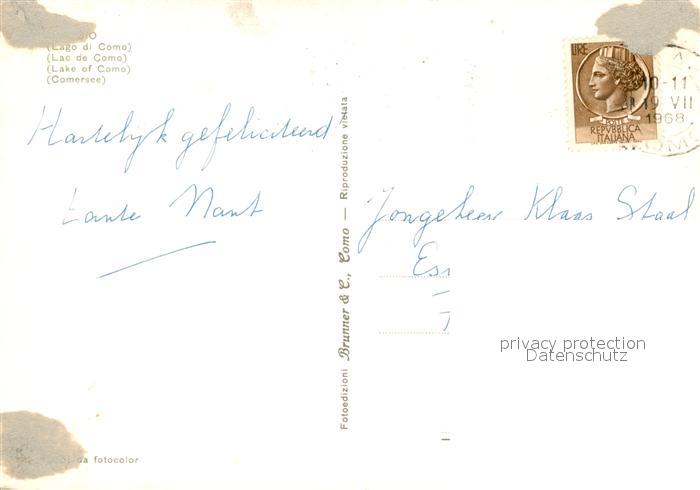 (Lago di Como)
(Lac de Como)
(Lake of Como)
(Comersee)
Hartelijk gefeliciteerd
tante Nant
fotocolor
Fotoedizioni Brunner & C., Como — Riproduzione vietata
LIRE
POSTE
REPVBBLICA
ITALIANA
10-11
19 VII
1968
Jongeheer Klaas Staal
privacy protection
Datenschutz